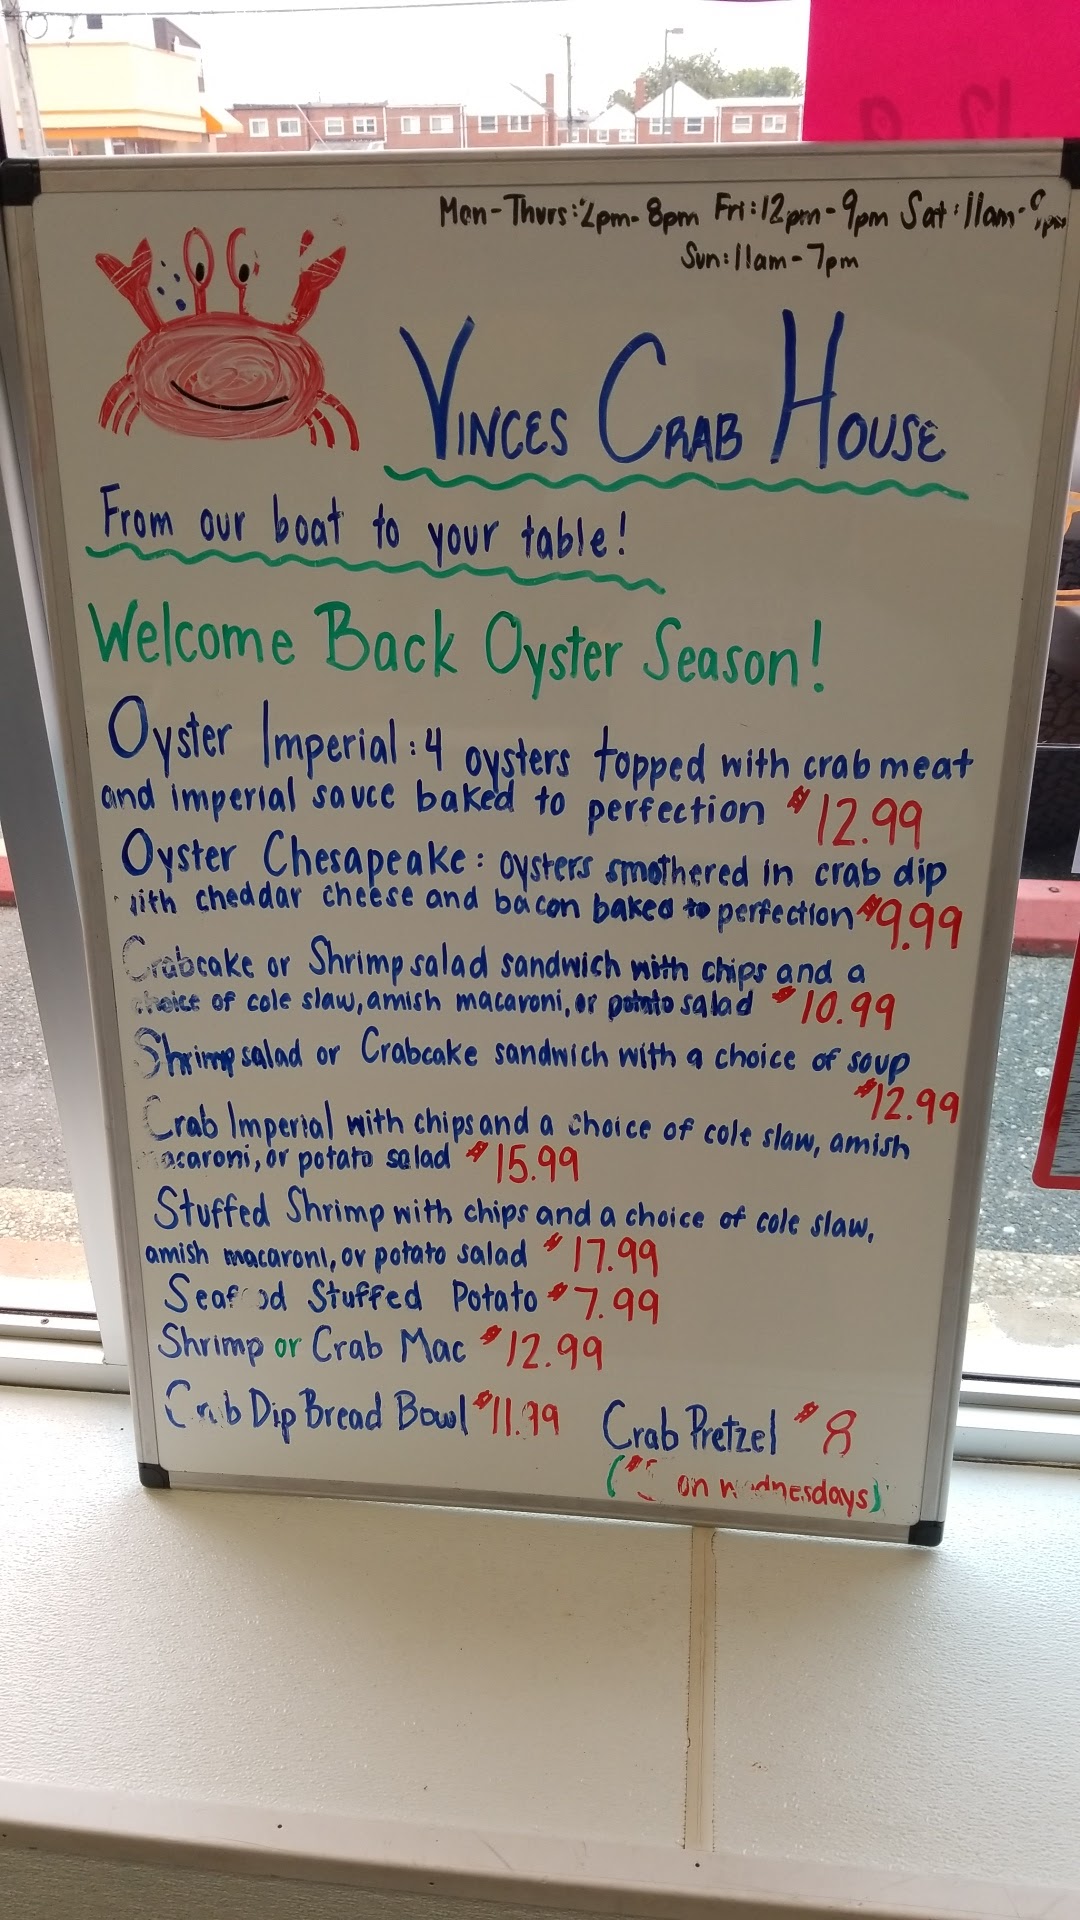 Mon-Thurs: 2pm-8pm Fri: 12pm-9pm Sat: 11am-9pm
Sun: 11am-7pm
VINCES CRAB HOUSE
From our boat to your table!
Welcome Back Oyster Season!
Oyster Imperial: 4 oysters topped with crab meat
and imperial sauce baked to perfection $12.99
Oyster Chesapeake: oysters smothered in crab dip
with cheddar cheese and bacon baked to perfection $9.99
Crabcake or Shrimp salad sandwich with chips and a
choice of cole slaw, amish macaroni, or potato salad $10.99
Shrimp salad or Crabcake sandwich with a choice of soup
$12.99
Crab Imperial with chips and a choice of cole slaw, amish
macaroni, or potato salad $15.99
Stuffed Shrimp with chips and a choice of cole slaw,
amish macaroni, or potato salad $17.99
Seafood Stuffed Potato $7.99
Shrimp or Crab Mac $12.99
Crab Dip Bread Bowl $11.99
Crab Pretzel $8
( on wednesdays)